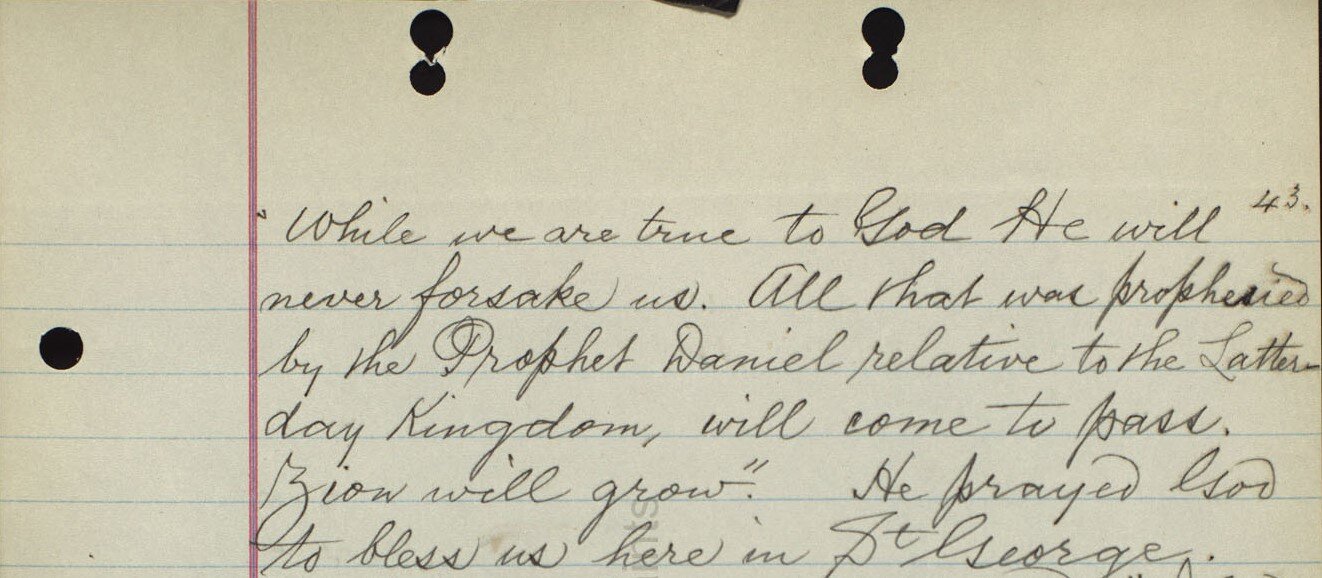 43.
"While we are true to God He will
never forsake us. All that was prophesied
by the Prophet Daniel relative to the Latter-
day Kingdom, will come to pass.
Zion will grow". He prayed God
to bless us here in St George.